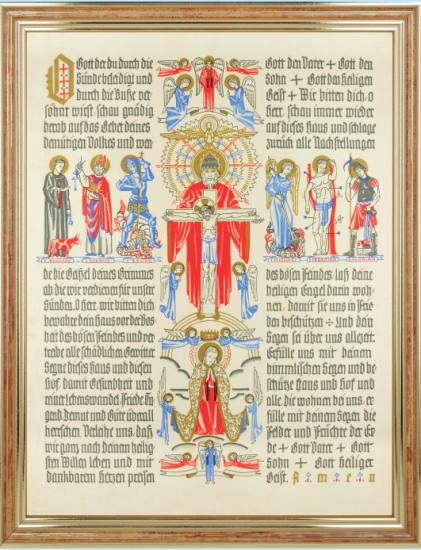 O Gott der du durch die
Sünde beleidigt und
durch die Buße ver
söhnt wirst, schau gnädig
herab auf das Gebet deines
demütigen Volkes und wen
de die Geißel deines Grimmes
ab die wir verdienen für unsere
Sünden. O Herr wir bitten dich
bewahre dein Haus vor der Bos
hat des bösen Feindes und ver
treibe alle schädlichen Gewitter
Segne dieses Haus und diesen
Hof, damit Gesundheit und
reiner Lebenswandel, Friede, Tu
gend, Demut und Güte überall
herrschen. Verleihe uns, daß
wir ganz nach deinem heilig
sten Willen leben und mit
dankbarem Herzen preisen
Gott den Vater + Gott den
Sohn + Gott den heiligen
Geist + Wir bitten dich o
Herr schau immer wieder
auf dieses Haus und schlage
zurück alle Nachstellungen
S. MICHAEL S. SEBASTIAN S. FLORIAN
des bösen Feindes, laß deine
heiligen Engel darin woh
nen, damit sie uns in Frie
den beschützen + Und dein
Segen sei über uns allezeit.
Erfülle uns mit deinem
himmlischen Segen und be
schütze Haus und Hof und
alle die wohnen bei uns, er
fülle mit deinem Segen die
Felder und Früchte der Er
de + Gott Vater + Gott
Sohn + Gott heiliger
Geist. Amen